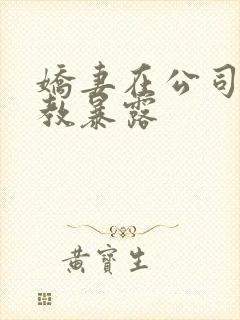 嬌妻在公司
教暴露
黃寶生